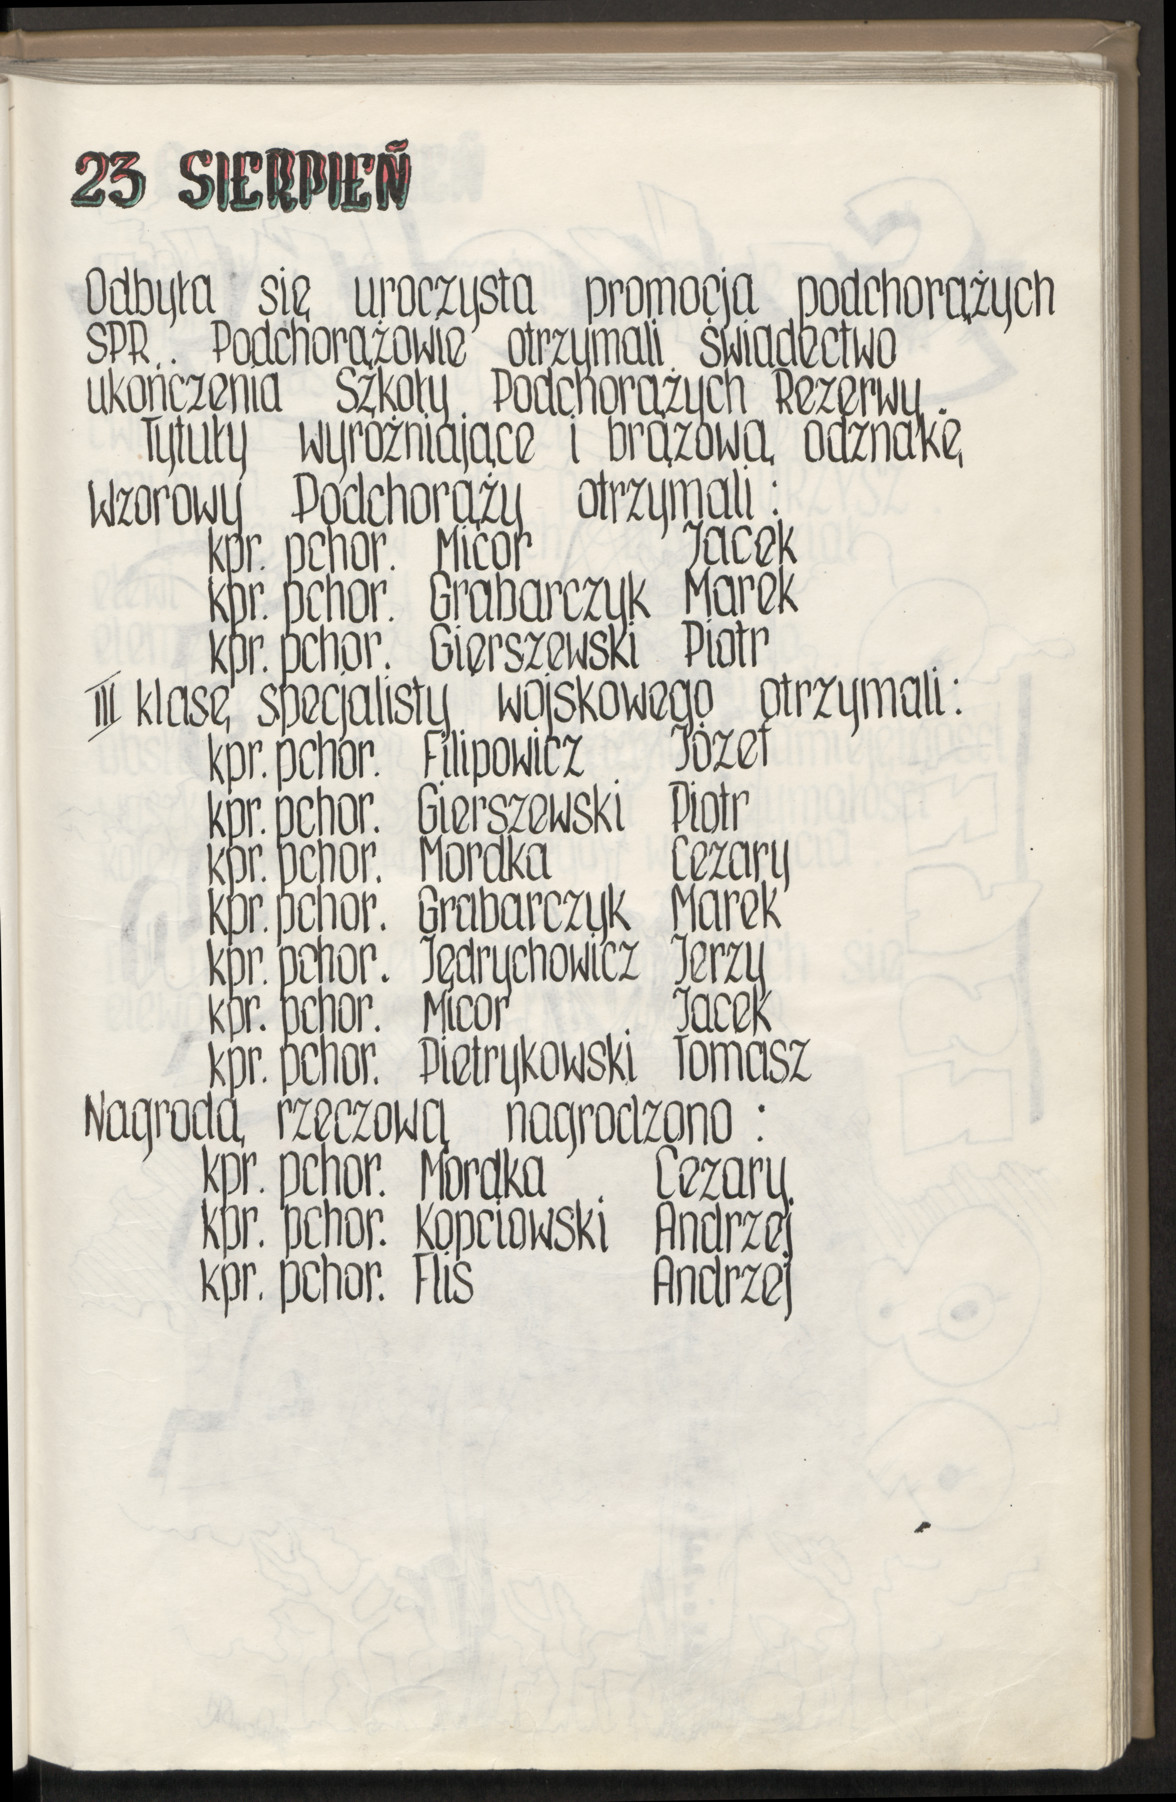 23 SIERPIEŃ
Odbyła się uroczysta promocja podchorążych
SPR. Podchorążowie otrzymali świadectwo
ukończenia Szkoły Podchorążych Rezerwy.
Tytuły wyróżniające i brązową odznakę
Wzorowy Podchorąży otrzymali:
kpr. pchor. Micor Jacek
kpr. pchor. Grabarczyk Marek
kpr. pchor. Gierszewski Piotr
III klasę specjalisty wojskowego otrzymali:
kpr. pchor. Filipowicz Józef
kpr. pchor. Gierszewski Piotr
kpr. pchor. Mordka Cezary
kpr. pchor. Grabarczyk Marek
kpr. pchor. Jędrychowicz Jerzy
kpr. pchor. Micor Jacek
kpr. pchor. Pietrykowski Tomasz
Nagrodą rzeczową nagrodzono:
kpr. pchor. Mordka Cezary
kpr. pchor. Kopciowski Andrzej
kpr. pchor. Flis Andrzej